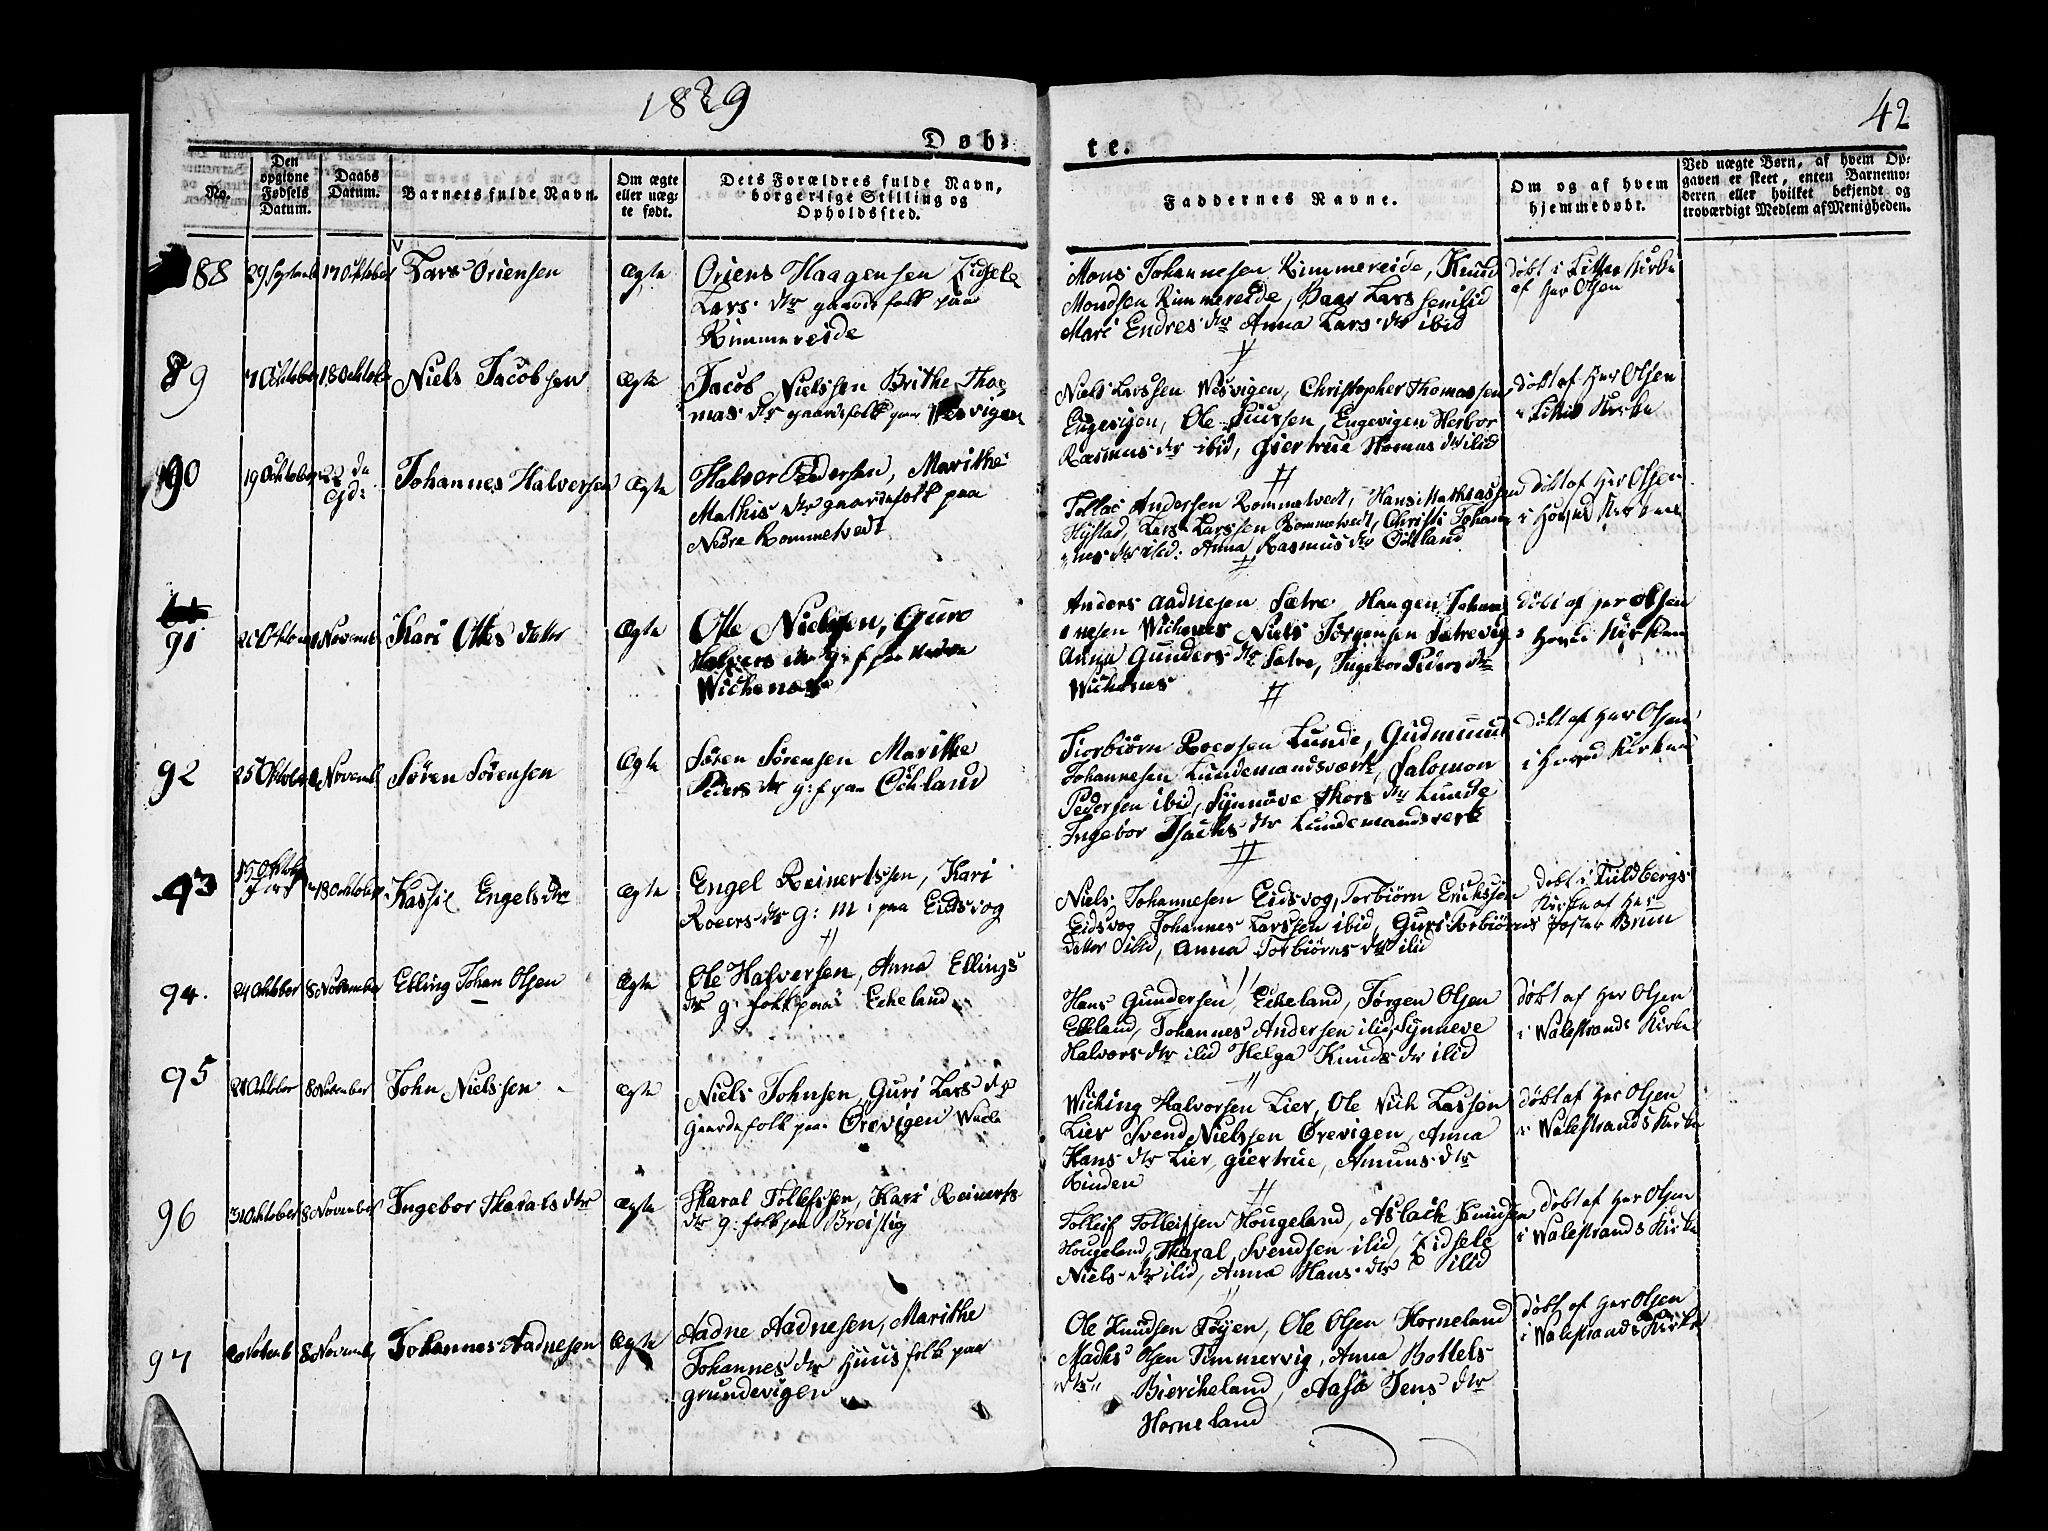 1829
42
Døb-
te.
No.
Den opgivne Fødsels Datum.
Daabs Datum.
Barnets fulde Navn.
Om ægte eller uægte født.
Dets Forældres fulde Navn, borgerlige Stilling og Opholdssted.
Faddernes Navne.
Om og af hvem hjemmedøbt.
Ved uægte Børn, af hvem Op-
gaven er skeet, enten Barnemo-
deren eller hvilket bekjendt og
troværdigt Medlem af Menigheden.
88
17 Oktober
Lars Oriensen
Ægte
Oriens Haagensen Zidsele
Lars dtr gaardsfolk paa
Rimmereide
Mons Johannesen Rimmereide, Knud
Mondsen Rimmereide, Baar Larssen ibid
Mari Endres dtr Anna Lars dtr ibid
døbt i Kirke
af Her Olsen
89
7 Oktober
18 Oktober
Niels Jacobsen
Ægte
Jacob Nielssen Brithe Tho-
mas dtr gaardsfolk paa Wesvigen
Niels Larssen Wesvigen, Christopher Thomassen
Engevigen, Ole Siurssen, Engevigen Herbor
Rasmus dtr ibid, Giertrue Thomas dtr ibid
døbt af Her Olsen
i Kirke
90
19 Oktober
Johannes Halversen
Ægte
Halver Pedersen, Marithe
Mathis dtr gaardsfolk paa
Nedre Rommetvedt
Tollac Andersen Rommetvedt, Hans Mathiassen
Hystad, Lars Larssen Rommetvedt, Christi Johan-
nes dtr ibid: Anna Rasmus dtr Ochland
døbt af Her Olsen
i Hoved Kirken
91
Kari Ottes datter
Ægte
Otte Nielssen, Guro
Halvers dtr g: f paa Nedre
Wichenes
Anders Aadnesen Sætre Haagen Johan-
nesen Wichenes Niels Jørgensen Sætrevig
Anna Gunders dtr Sætre, Ingebor Peders dtr
Wichenes
Døbt af Her Olsen
i Hoved Kirken
92
25 Oktober
1 Novemb
Søren Sørensen
Ægte
Søren Sørensen Marithe
Peders dtr g: f paa Ochland
Torbiørn Roersen Lunde, Gudmund
Johannesen Lundemandsværk, Salomon
Pedersen ibid, Synnøve Thors dtr Lunde
Ingebor Isachs dtr Lundemandsverk
Døbt af Her Olsen
i Hoved Kirken
93
15 Oktober
18 Oktober
Kassie Engels dtr
Ægte
Engel Reinertssen, Kari
Roeers dtr g: M: paa Eidsvog
Niels Johannesen Eidsvog, Torbiørn Ericksen
Eidsvog Johannes Larssen ibid, Guri Torbiørns
datter ibid, Anna Torbiørns dtr ibid
Døbt i Fieldbergs
Kirke af Her
Pastor Brun
94.
24 Oktober
8 November
Elling Johan Olsen
Ægte
Ole Halversen, Anna Ellings
dtr g: folk paa Eckeland
Hans Gundersen, Eckeland, Jørgen Olsen
Eckeland, Johannes Andersen ibid, Synneve
Halvors dtr ibid Helga Knuds dtr ibid
døbt af Her Olsen
i Walestrands Kirke
95
8 November
John Nielssen
Ægte
Niels Johnsen, Guri Lars dtr
Gaardsfolk paa Ørevigen
Wiching Halvorsen Lier, Ole Lassen
Lier Svend Nielssen Ørevigen, Anna
Hans dtr Lier, Giertrue, Amuns dtr
Rinden
døbt af Her Olsen
i Walestrands Kirke
96
31 Oktober
8 November
Ingebor Tharals dtr
Ægte
Tharal Tollefssen, Kari Reinerts
dtr g: folk paa Breistig
Tolleif Tolleifsen Hougeland, Aslack Knudsen
Hougeland, Tharal Svendsen ibid, Zidsele
Niels dtr ibid, Anna Hans dtr ibid
Døbt af Her Olsen
i Walestrands Kirke
97
8 Novemb
Johannes Aadnesen
Ægte
Aadne Aadnesen, Marithe
Johannes dtr Huusfolk paa
Grundevigen
Ole Knudsen Tøyen, Ole Olsen Horneland
Madhs Olsen Timmervig, Anna Bottels-
dtr Biercheland, Aaså Jens dtr
Horneland
Døbt af Her Olsen
i Walestrands Kirke